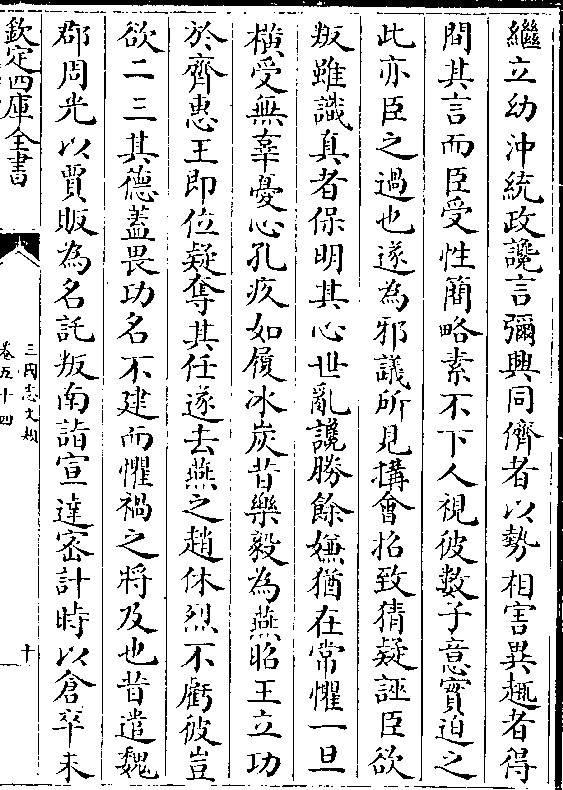 繼立幼沖統政讒言彌興同儕者以勢相害異趣者得
間其言而臣受性簡略素不下人視彼數子意實迫之
此亦臣之過也遂為邪議所見搆會招致猜疑誣臣欲
叛雖識真者保明其心世亂讒勝餘嫌猶在常懼一旦
橫受無辜憂心孔疚如履冰炭昔樂毅為燕昭王立功
於齊惠王即位疑奪其任遂去燕之趙休烈不虧彼豈
欲二三其德蓋畏功名不建而懼禍之將及也昔遣魏
郡周光以賈販為名託叛南詣宣達密計時以倉卒未
欽定四庫全書
三國志文類
卷五十四
十